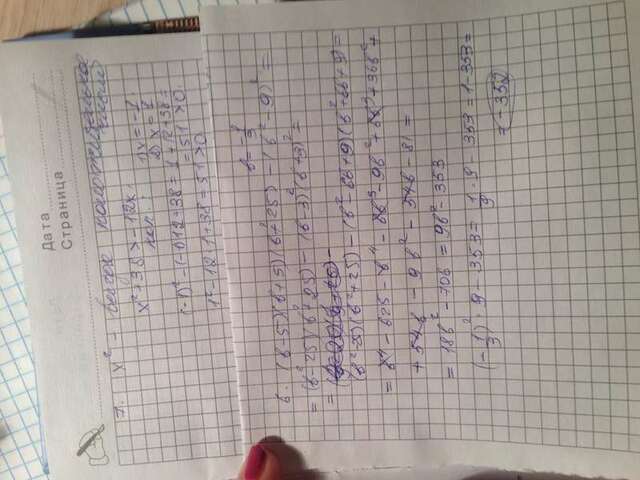 Дата
Страница
7. x² - всегда положительное
число
x² + 38 > -12x.
1) x = -1.
2) x = 1
(-1)² - (-1)12 + 38 = 1 + 12 + 38 =
= 51 > 0.
1² - 12·1 + 38 = 51 > 0
b = -1/3
6. (b-5)(b+5)(b²+25) - (b²-9)² =
= (b²-25)(b²+25) - (b-3)²(b+3)² =
=
(b²-25)(b²+25) - (b²-6b+9)(b²+6b+9) =
= b⁴ - 625 - b⁴ - 6b³ - 9b² + 6b³ + 36b² +
+ 54b - 9b² - 54b - 81 =
= 18b² - 706 = 9b² - 353
(-1/3)² · 9 - 353 = 1/9 · 9 - 353 = 1 - 353 =
= -352